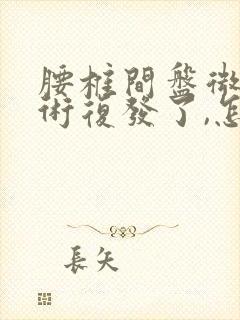 腰椎間盤微
術復發了,怎
長矢